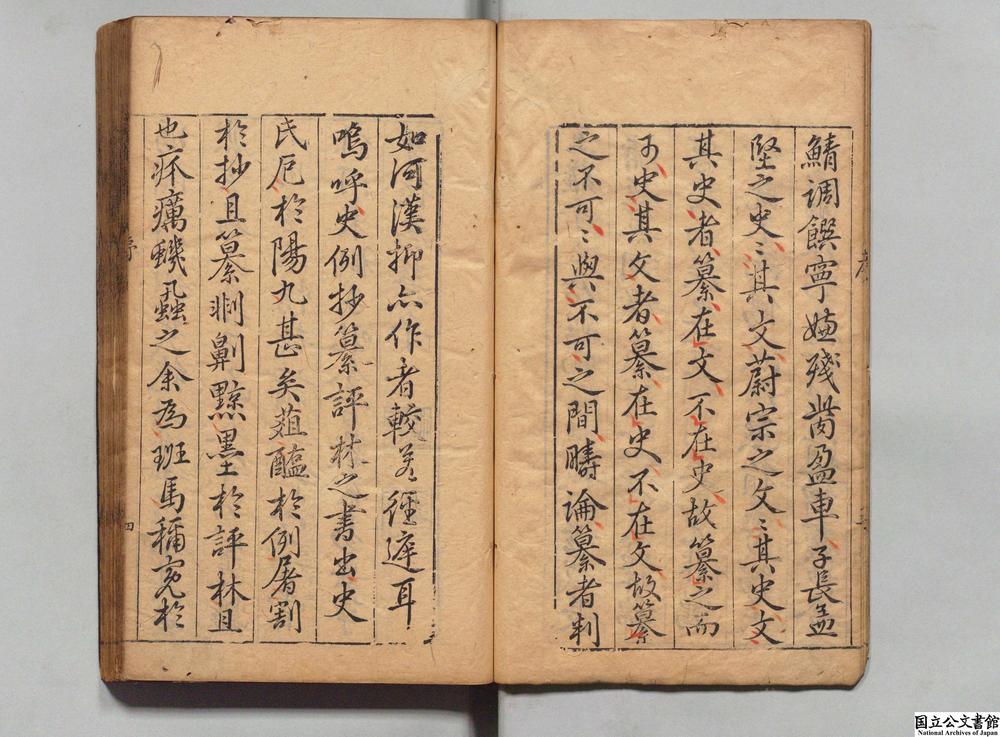 鯖調饌寧嫌殘胾盈車子長孟
堅之史〻其文蔚宗之文〻其史文
其史者纂在文不在史故纂之而
可史其文者纂在史不在文故纂
之不可〻與不可之間疇論纂者判
如河漢抑亦作者較若徑庭耳
嗚呼史例抄纂評林之書出史
氏厄於陽九甚矣葅醢於例屠割
於抄且纂刵劓黥墨於評林且
也疥癘蟣蝨之余為班馬稱寃於
四
国立公文書館
National Archives of Japan